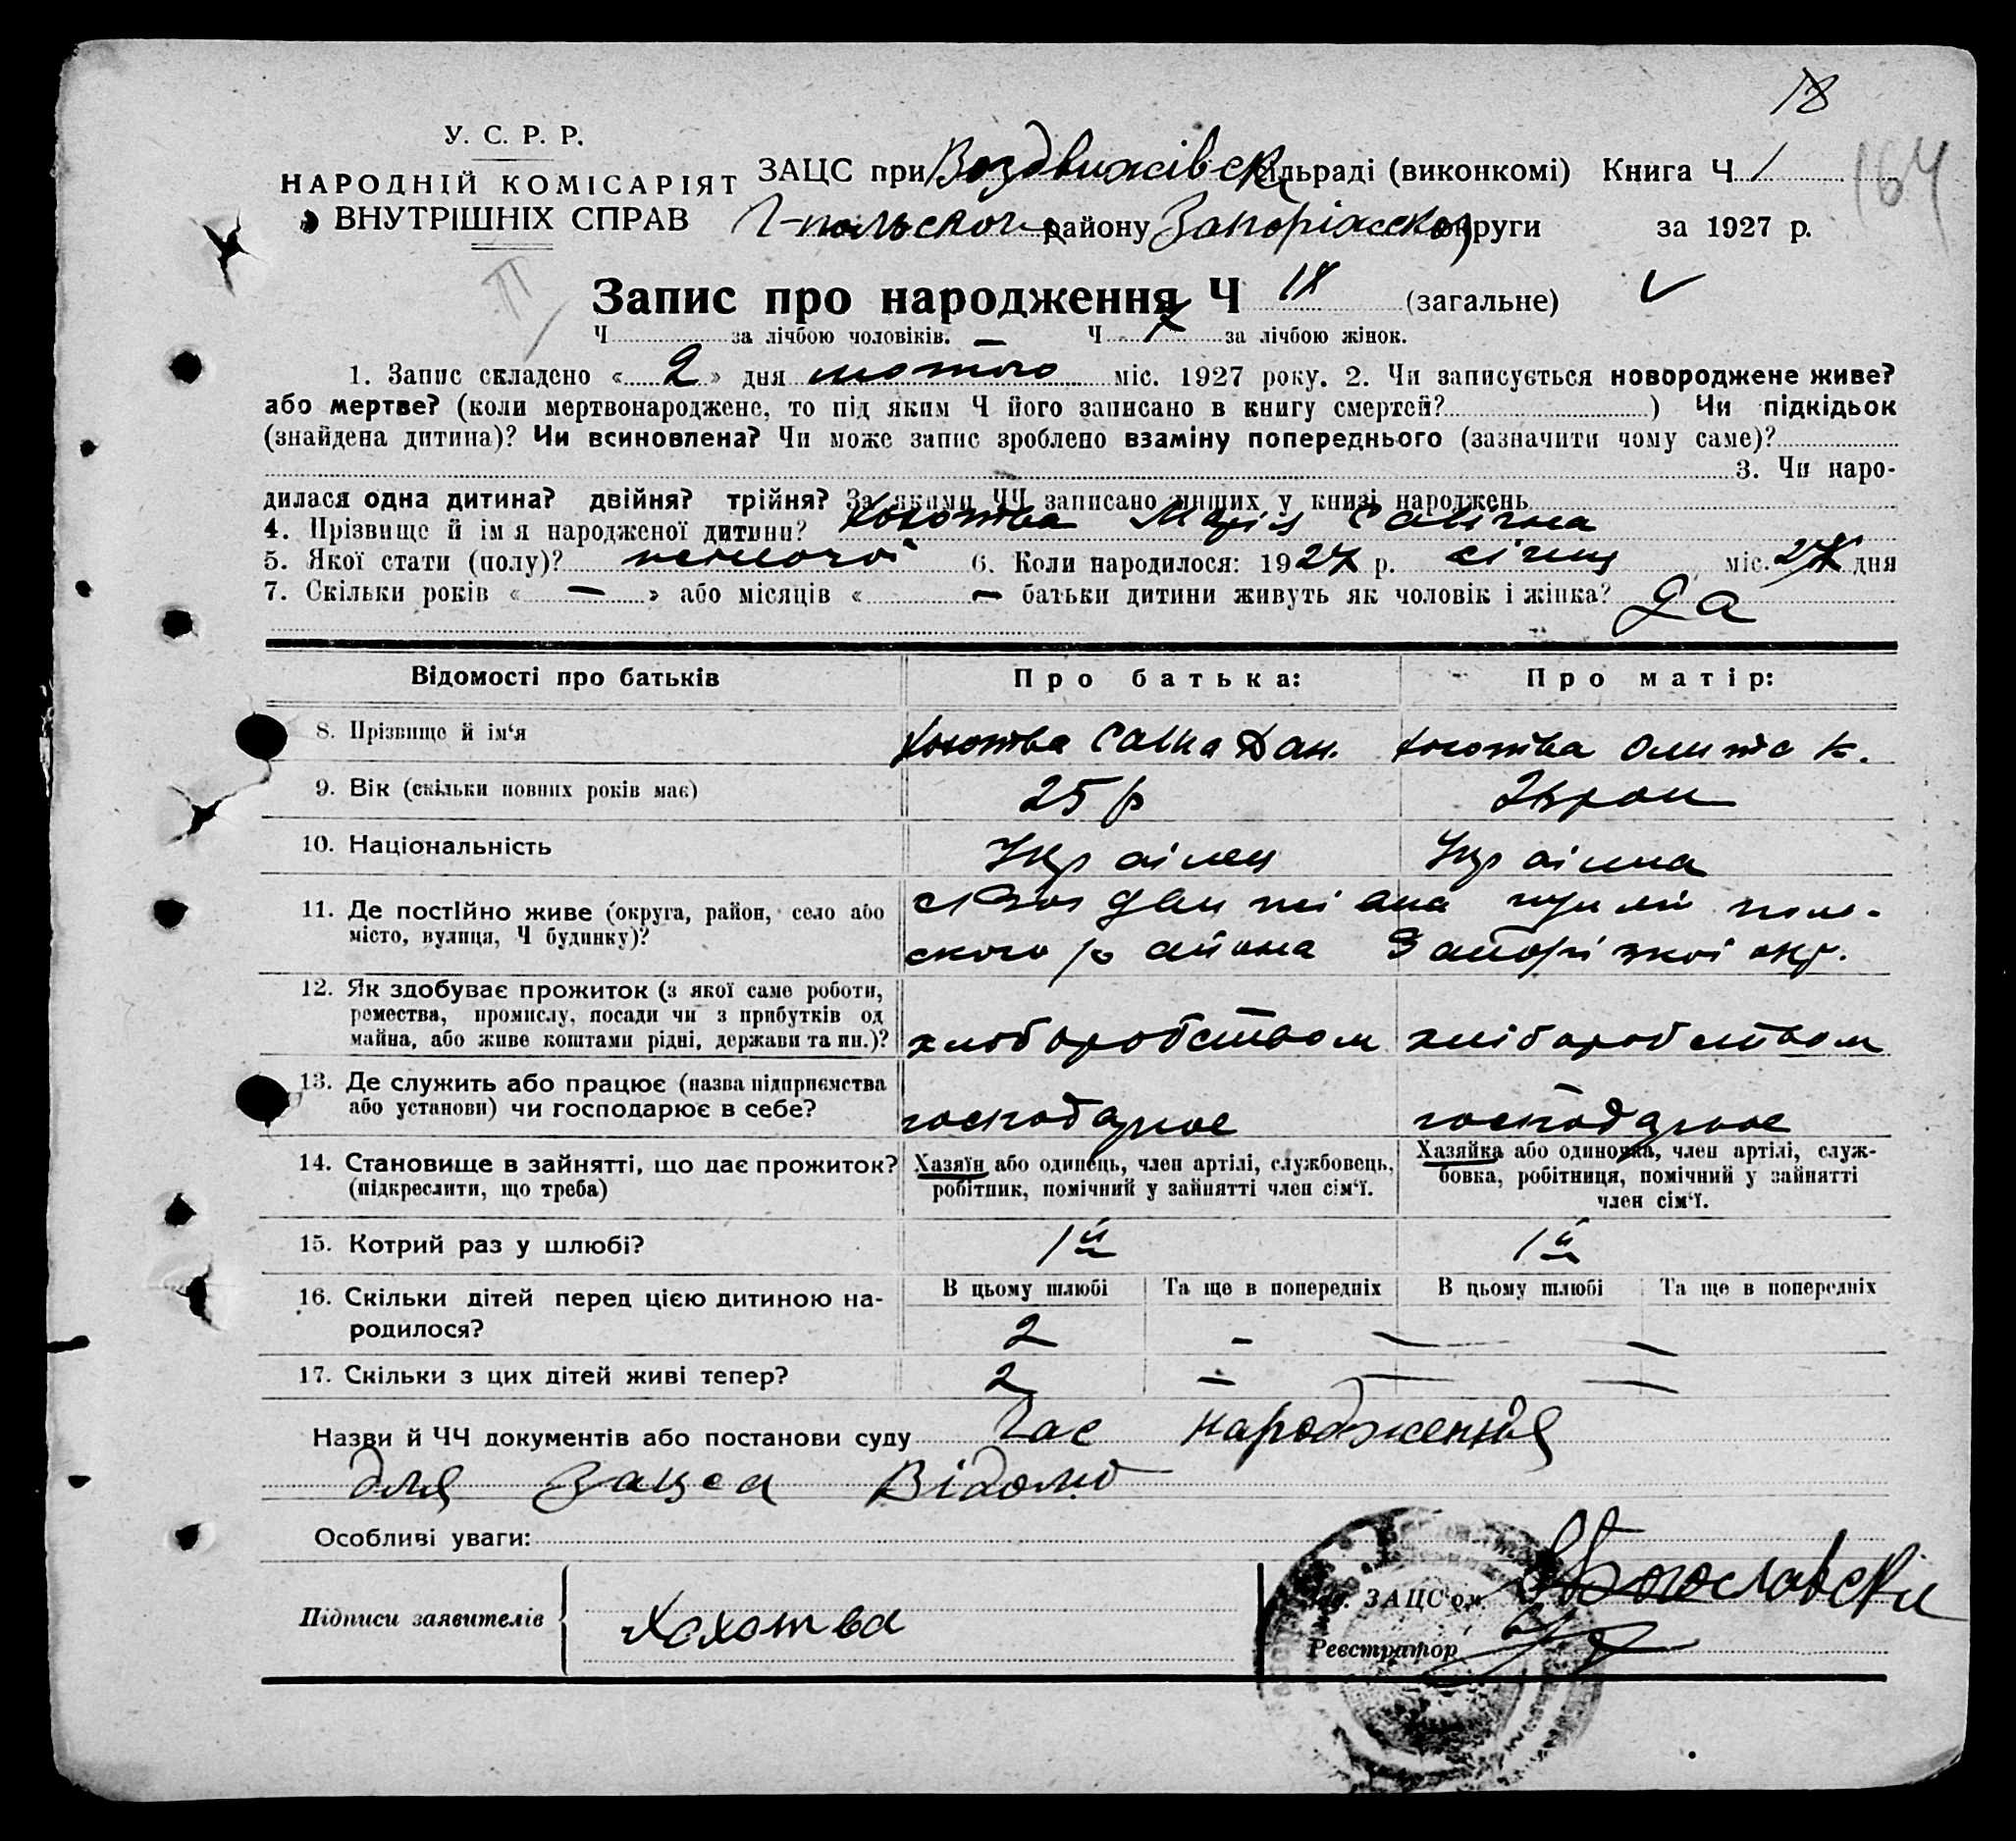 18
164
У. С. Р. Р.
НАРОДНІЙ КОМІСАРІЯТ
ВНУТРІШНІХ СПРАВ
ЗАЦС при Воздвижівск сільраді (виконкомі) Книга Ч 1
Г-польского району Запоріжской округи за 1927 р.
Запис про народження Ч 18 (загальне)
Ч за лічбою чоловіків. Ч за лічбою жінок.
1. Запис складено « 2 » дня лютого міс. 1927 року. 2. Чи записується новороджене живе?
або мертве? (коли мертвонароджене, то під яким Ч його записано в книгу смертей? ) Чи підкідьок
(знайдена дитина)? Чи всиновлена? Чи може запис зроблено взаміну попереднього (зазначити чому саме)?
3. Чи наро-
дилася одна дитина? двійня? трійня? За якими ЧЧ записано инших у книзі народжень
4. Прізвище й ім я народженої дитини? Хохотва Марія Савична
5. Якої стати (полу)? жіночої 6. Коли народилося: 1927 р. січня міс. 27 дня
7. Скільки років « — » або місяців « — батьки дитини живуть як чоловік і жінка? Да
Відомості про батьків
Про батька:
Про матір:
8. Прізвище й ім‘я
Хохотва Сава Дан.
Хохотва К.
9. Вік (скільки повних років має)
25 р
10. Національність
Українец
Українка
11. Де постійно живе (округа, район, село або
місто, вулиця, Ч будинку)?
с Воздвижівка поль-
ского района Запоріжкої окр.
12. Як здобуває прожиток (з якої саме роботи,
ремества, промислу, посади чи з прибутків од
майна, або живе коштами рідні, держави та ин.)?
хліборобством
хліборобством
13. Де служить або працює (назва підприємства
або установи) чи господарює в себе?
господарює
господарює
14. Становище в зайнятті, що дає прожиток?
(підкреслити, що треба)
Хазяїн або одинець, член артілі, службовець,
робітник, помічний у зайнятті член сім‘ї.
Хазяйка або одиночка, член артілі, служ-
бовка, робітниця, помічний у зайнятті
член сім‘ї.
15. Котрий раз у шлюбі?
1й
1й
16. Скільки дітей перед цією дитиною на-
родилося?
В цьому шлюбі
Та ще в попередніх
В цьому шлюбі
Та ще в попередніх
2 - — —
17. Скільки з цих дітей живі тепер?
2 — — —
Назви й ЧЧ документів або постанови суду Час народження
для Зацса Відомо
Особливі уваги:
Підписи заявителів
Хохотва
Зав. ЗАЦС‘ом Богославски
Реєстратор